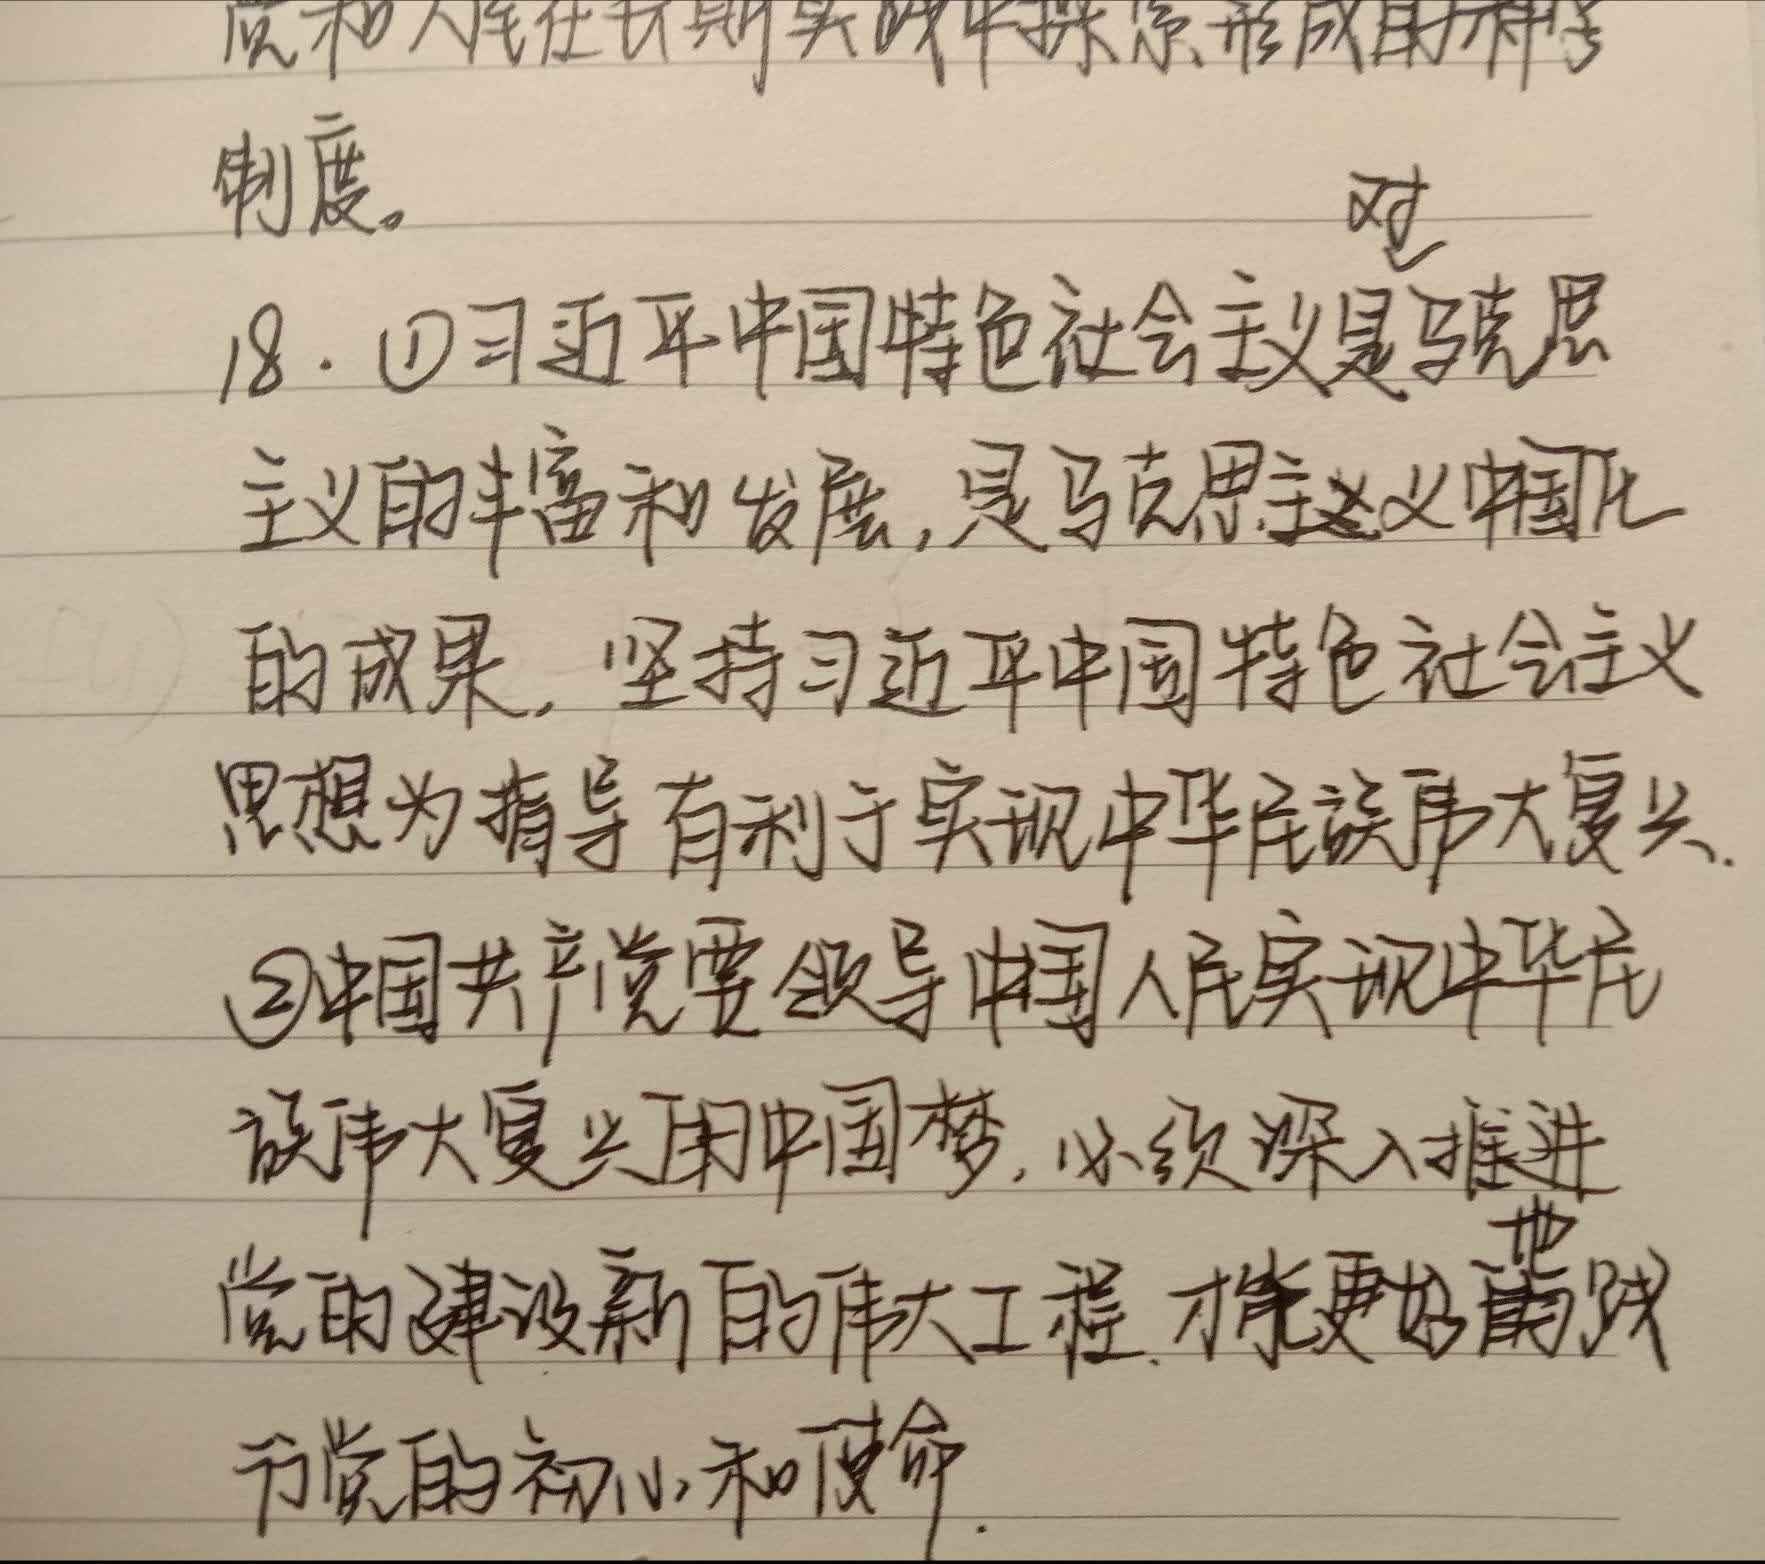 党和人民在长期实践中探索形成的科学
制度。
对
18. ①习近平中国特色社会主义是马克思
主义的丰富和发展,是马克思主义中国化
的成果, 坚持习近平中国特色社会主义
思想为指导有利于实现中华民族伟大复兴.
②中国共产党要领导中国人民实现中华民
族伟大复兴的中国梦, 必须深入推进
地
党的建设新的伟大工程. 才能更好践
行党的初心和使命.